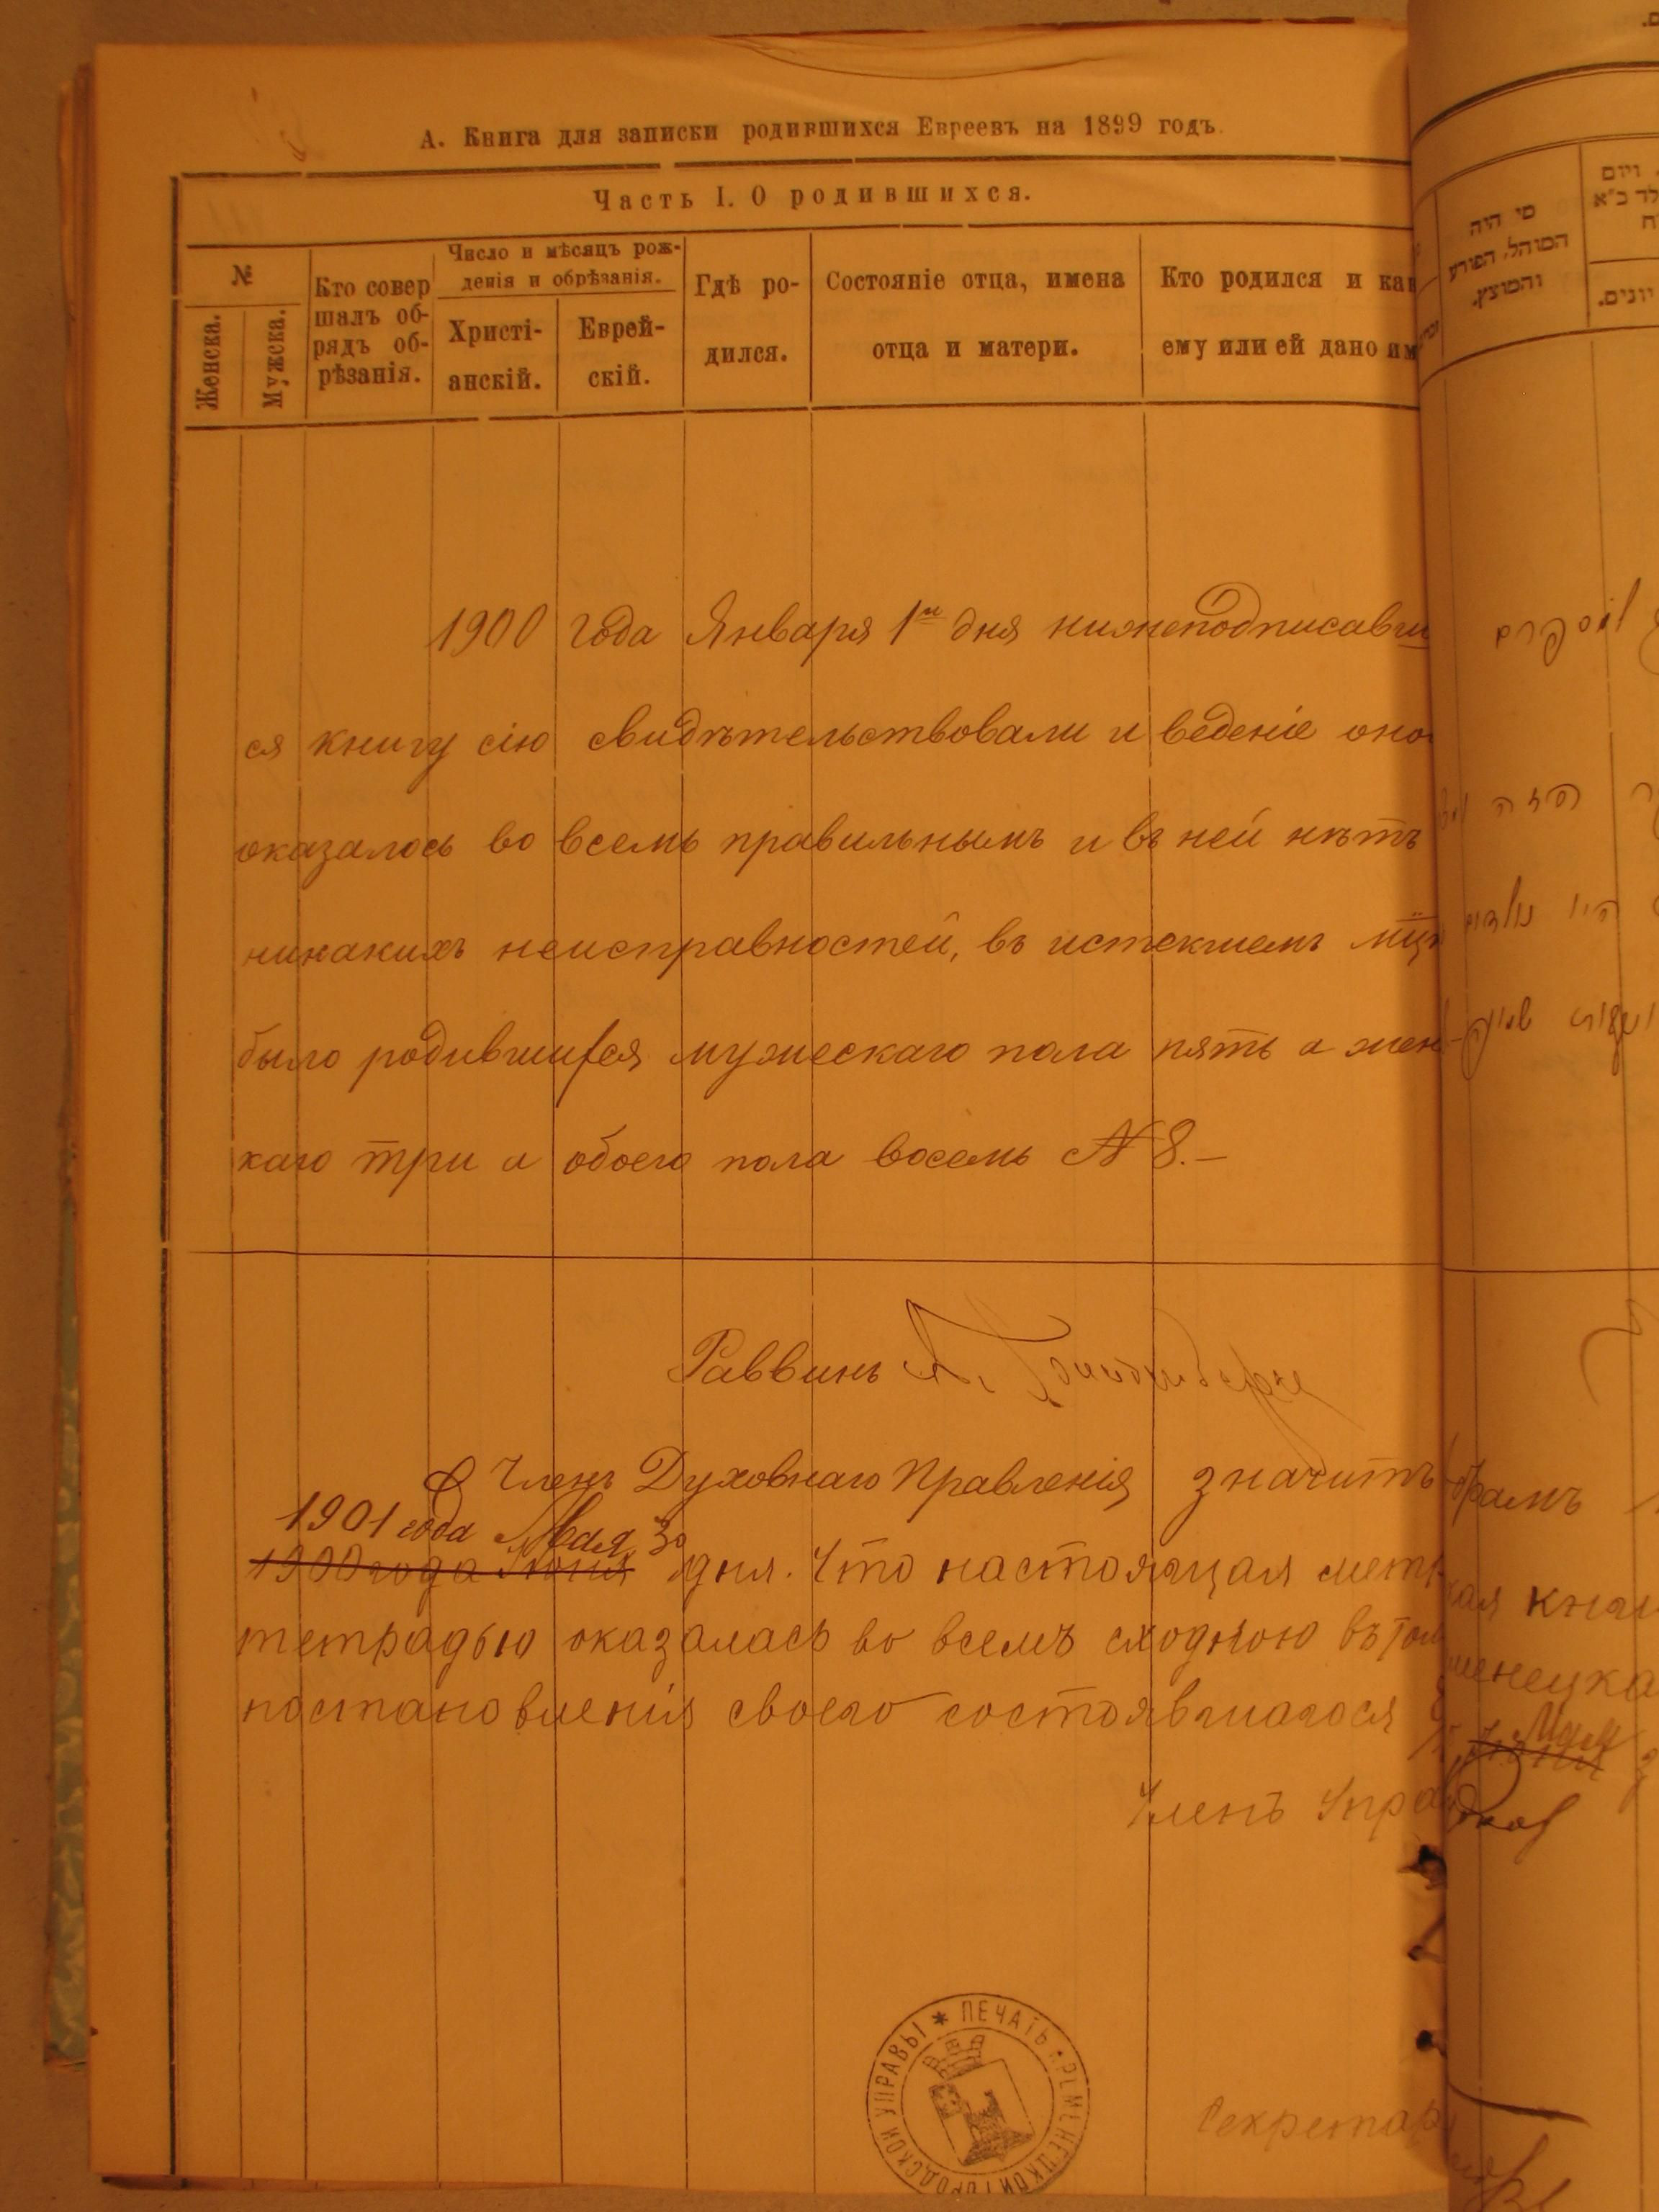 А. Книга для записки родившихся Евреевъ на 1899 годъ.
Часть I. О родившихся.
№
Женска.
Мужска.
Кто совер
шалъ об-
рядъ об-
рѣзанія.
Число и мѣсяцъ рож-
денія и обрѣзанія.
Христі-
анскій.
Еврей-
скій.
Гдѣ ро-
дился.
Состояніе отца, имена
отца и матери.
Кто родился и как
ему или ей дано им
מי היה
המוהל, הפורע
והמוצץ.
ויום
יונים.
1900 года Января 1го дня нижеподписавши
ся книгу сію свидѣтельствовали и веденіе оно
оказалось во всемъ правильнымъ и въ ней нѣтъ
никакихъ неисправностей, въ истекшемъ мцѣ
было родившихся мужескаго пола пять а жен
каго три а обоего пола восемь № 8.–
Раввинъ
Членъ Духовнаго Правленія
значитъ
1901 года Мая 30
1900 года Іюня дня. Что настоящая метр
тетрадью оказалась во всемъ сходною въ том
постановленія своего состоявшагося
Мая
Членъ Упра
ПЕЧАТЬ КРЕМЕНЕЦКОЙ ГОРОДСКОЙ УПРАВЫ
Секретарь